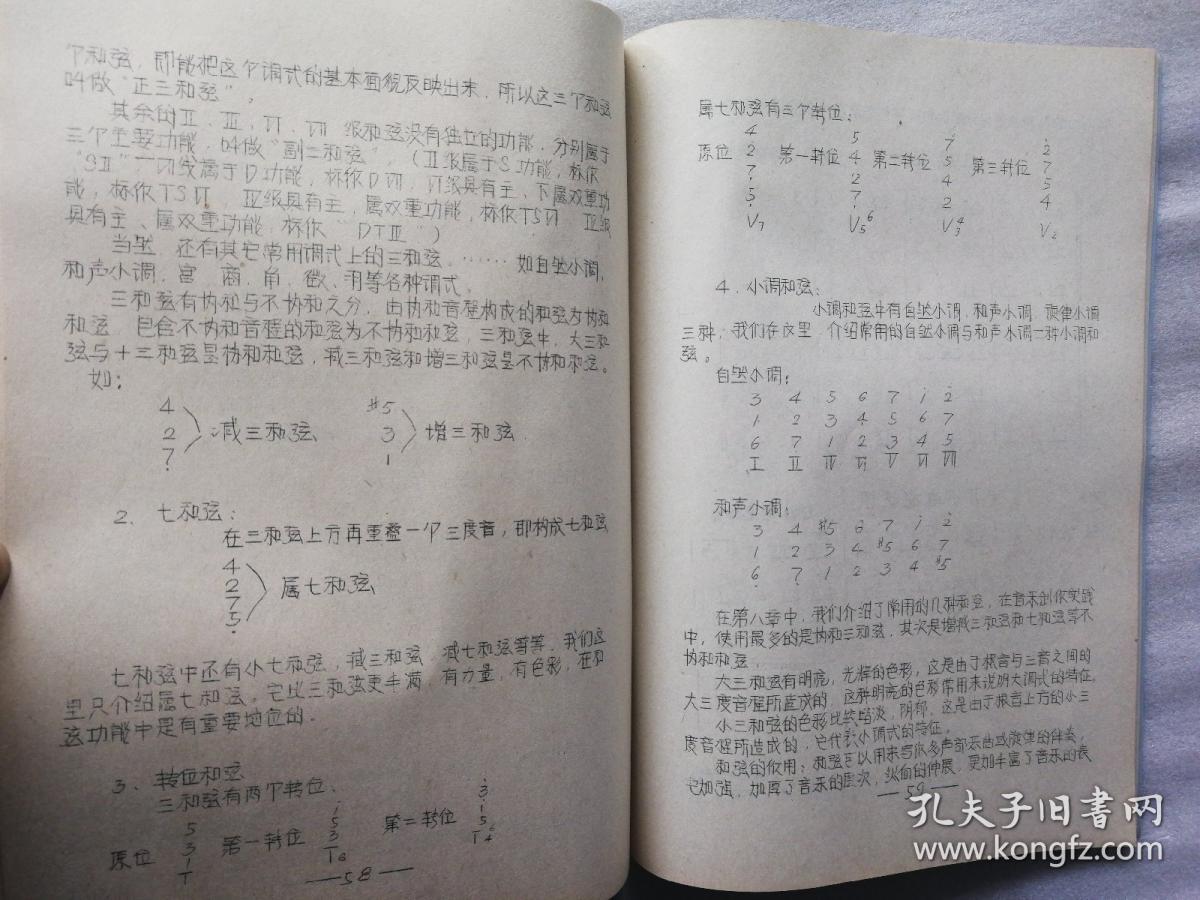 个和弦，即能把这个调式的基本面貌反映出来，所以这三个和弦
叫做“正三和弦”。
其余的Ⅱ、Ⅲ、Ⅵ、Ⅶ级和弦没有独立的功能，分别属于
三个主要功能，叫做“副三和弦”。（Ⅱ级属于S功能，标作
“SⅡ” Ⅶ级属于D功能，标作DⅦ，Ⅵ级具有主、下属双重功
能，标作TSⅥ，Ⅲ级具有主，属双重功能，标作TSⅥ Ⅲ级
具有主、属双重功能，标作“DTⅢ”）
当然，还有其它常用调式上的三和弦。……如自然小调，
和声小调，宫、商、角、徵、羽等各种调式。
三和弦有协和与不协和之分，由协和音程构成的和弦为协和
和弦，包含不协和音程的和弦为不协和和弦，三和弦中，大三和
弦与小三和弦是协和和弦，减三和弦和增三和弦是不协和和弦。
如：
4 #5
2 减三和弦、 3 增三和弦.
7̣ 1
2、七和弦：
在三和弦上方再重叠一个三度音，即构成七和弦
4
2 属七和弦、
7̣
5̣
七和弦中还有小七和弦，减三和弦，减七和弦等等，我们这
里只介绍属七和弦。它比三和弦更丰满，有力量，有色彩，在和
弦功能中是有重要地位的。
3、转位和弦
三和弦有两个转位、
5 i 3̇
原位 3 第一转位 5 第二转位 i
1 3 5
T T6 T64
—58—
属七和弦有三个转位：
4 5 7̇ 2̇
原位 2 第一转位 4 第二转位 5 第三转位 7
7̣ 2 4 5
5̣ 7̣ 2 4
V7 V65 V43 V2
4、小调和弦：
小调和弦中有自然小调、和声小调、旋律小调
三种，我们在这里，介绍常用的自然小调与和声小调二种小调和
弦。
自然小调：
3 4 5 6 7 i 2̇
1 2 3 4 5 6 7
6̣ 7̣ 1 2 3 4 5
Ⅰ Ⅱ Ⅳ Ⅵ Ⅴ Ⅵ Ⅶ
和声小调：
3 4 #5 6 7 i 2̇
1 2 3 4 #5 6 7
6̣ 7̣ 1 2 3 4 #5
在第八章中，我们介绍了常用的几种和弦，在音乐创作实践
中，使用最多的是协和三和弦，其次是增减三和弦和七和弦等不
协和和弦，
大三和弦有明亮，光辉的色彩，这是由于根音与三音之间的
大三度音程所造成的，这种明亮的色彩常用来说明大调式的特征。
小三和弦的色彩比较暗淡，阴郁，这是由于根音上方的小三
度音程所造成的，它代表小调式的特征。
和弦的作用：和弦可以用来写作多声部乐曲或旋律的伴奏，
它加强，加厚了音乐的层次，纵向的伸展，更加丰富了音乐的表
—59—
孔夫子旧书网
www.kongfz.com